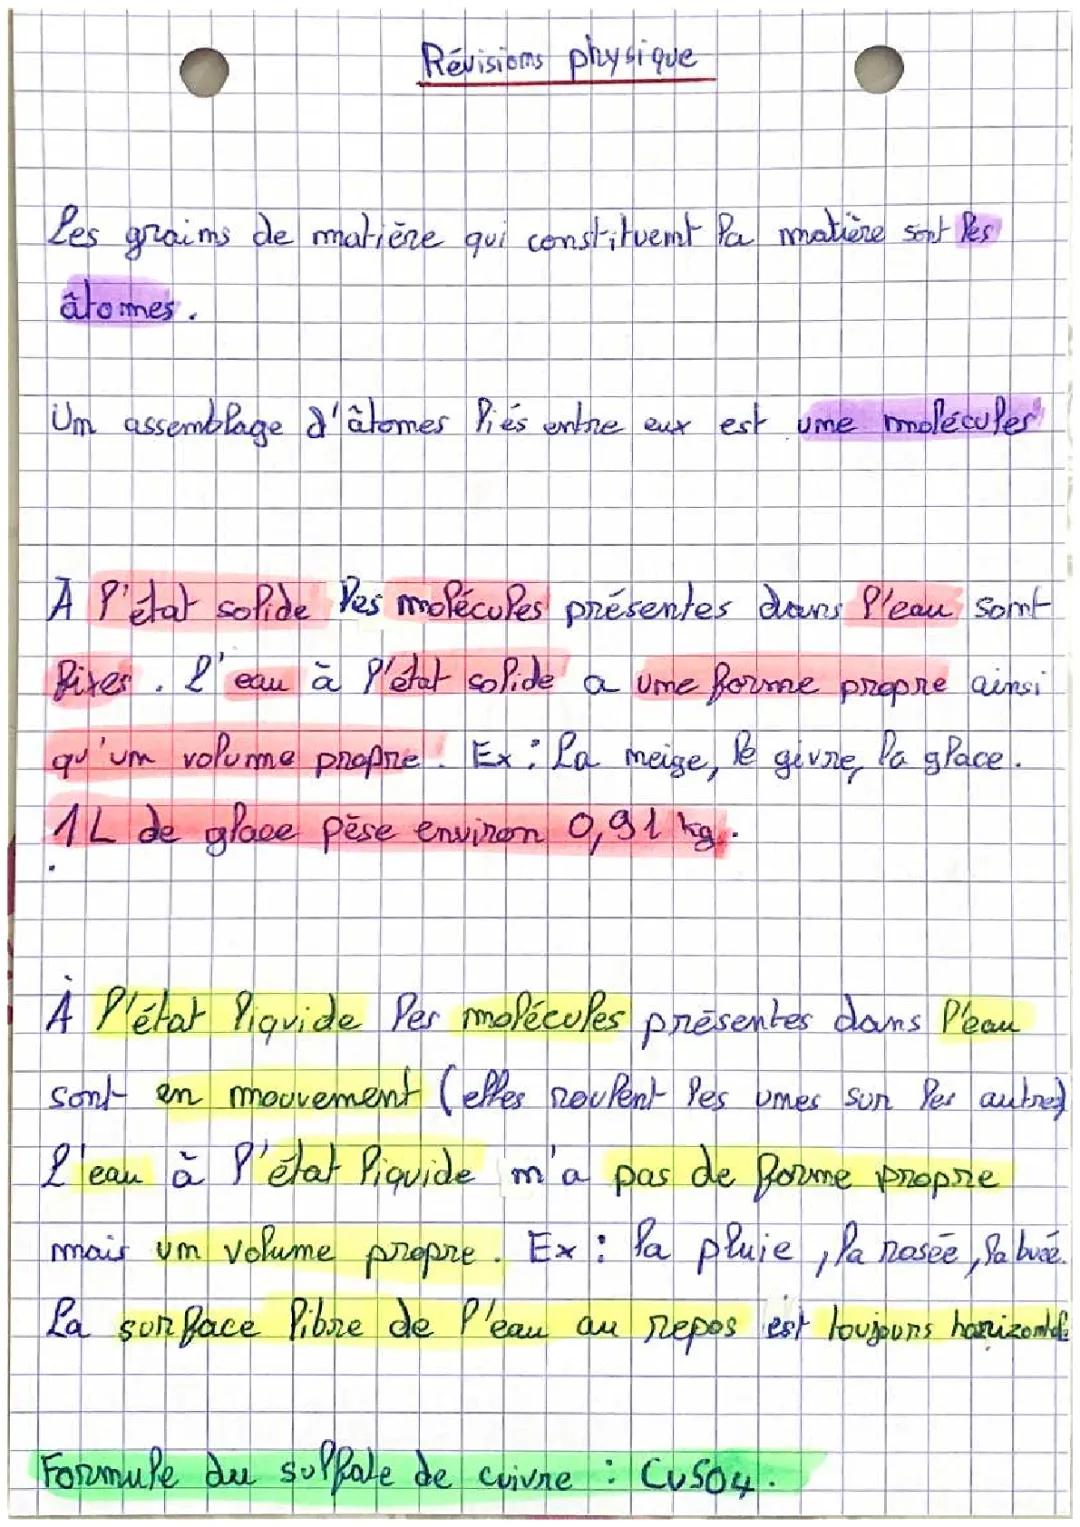 Révisions physique
Les grains de matière qui constituent la matière sont les
âtomes.
Un assemblage d'âtomes liés entre eux est une molécules
À l'état solide les molécules présentes dans l'eau sont
fixes. L'eau à l'état solide a une forme propre ainsi
qu'un volume propre. Ex : La neige, le givre, la glace.
1L de glace pèse environ 0,91 kg.
À l'état liquide les molécules présentes dans l'eau
sont en mouvement (elles roulent les unes sur les autres)
L'eau à l'état liquide n'a pas de forme propre
mais un volume propre. Ex : la pluie, la rosée, la buée.
La surface libre de l'eau au repos est toujours horizontale
Formule du sulfate de cuivre : CuSO4.